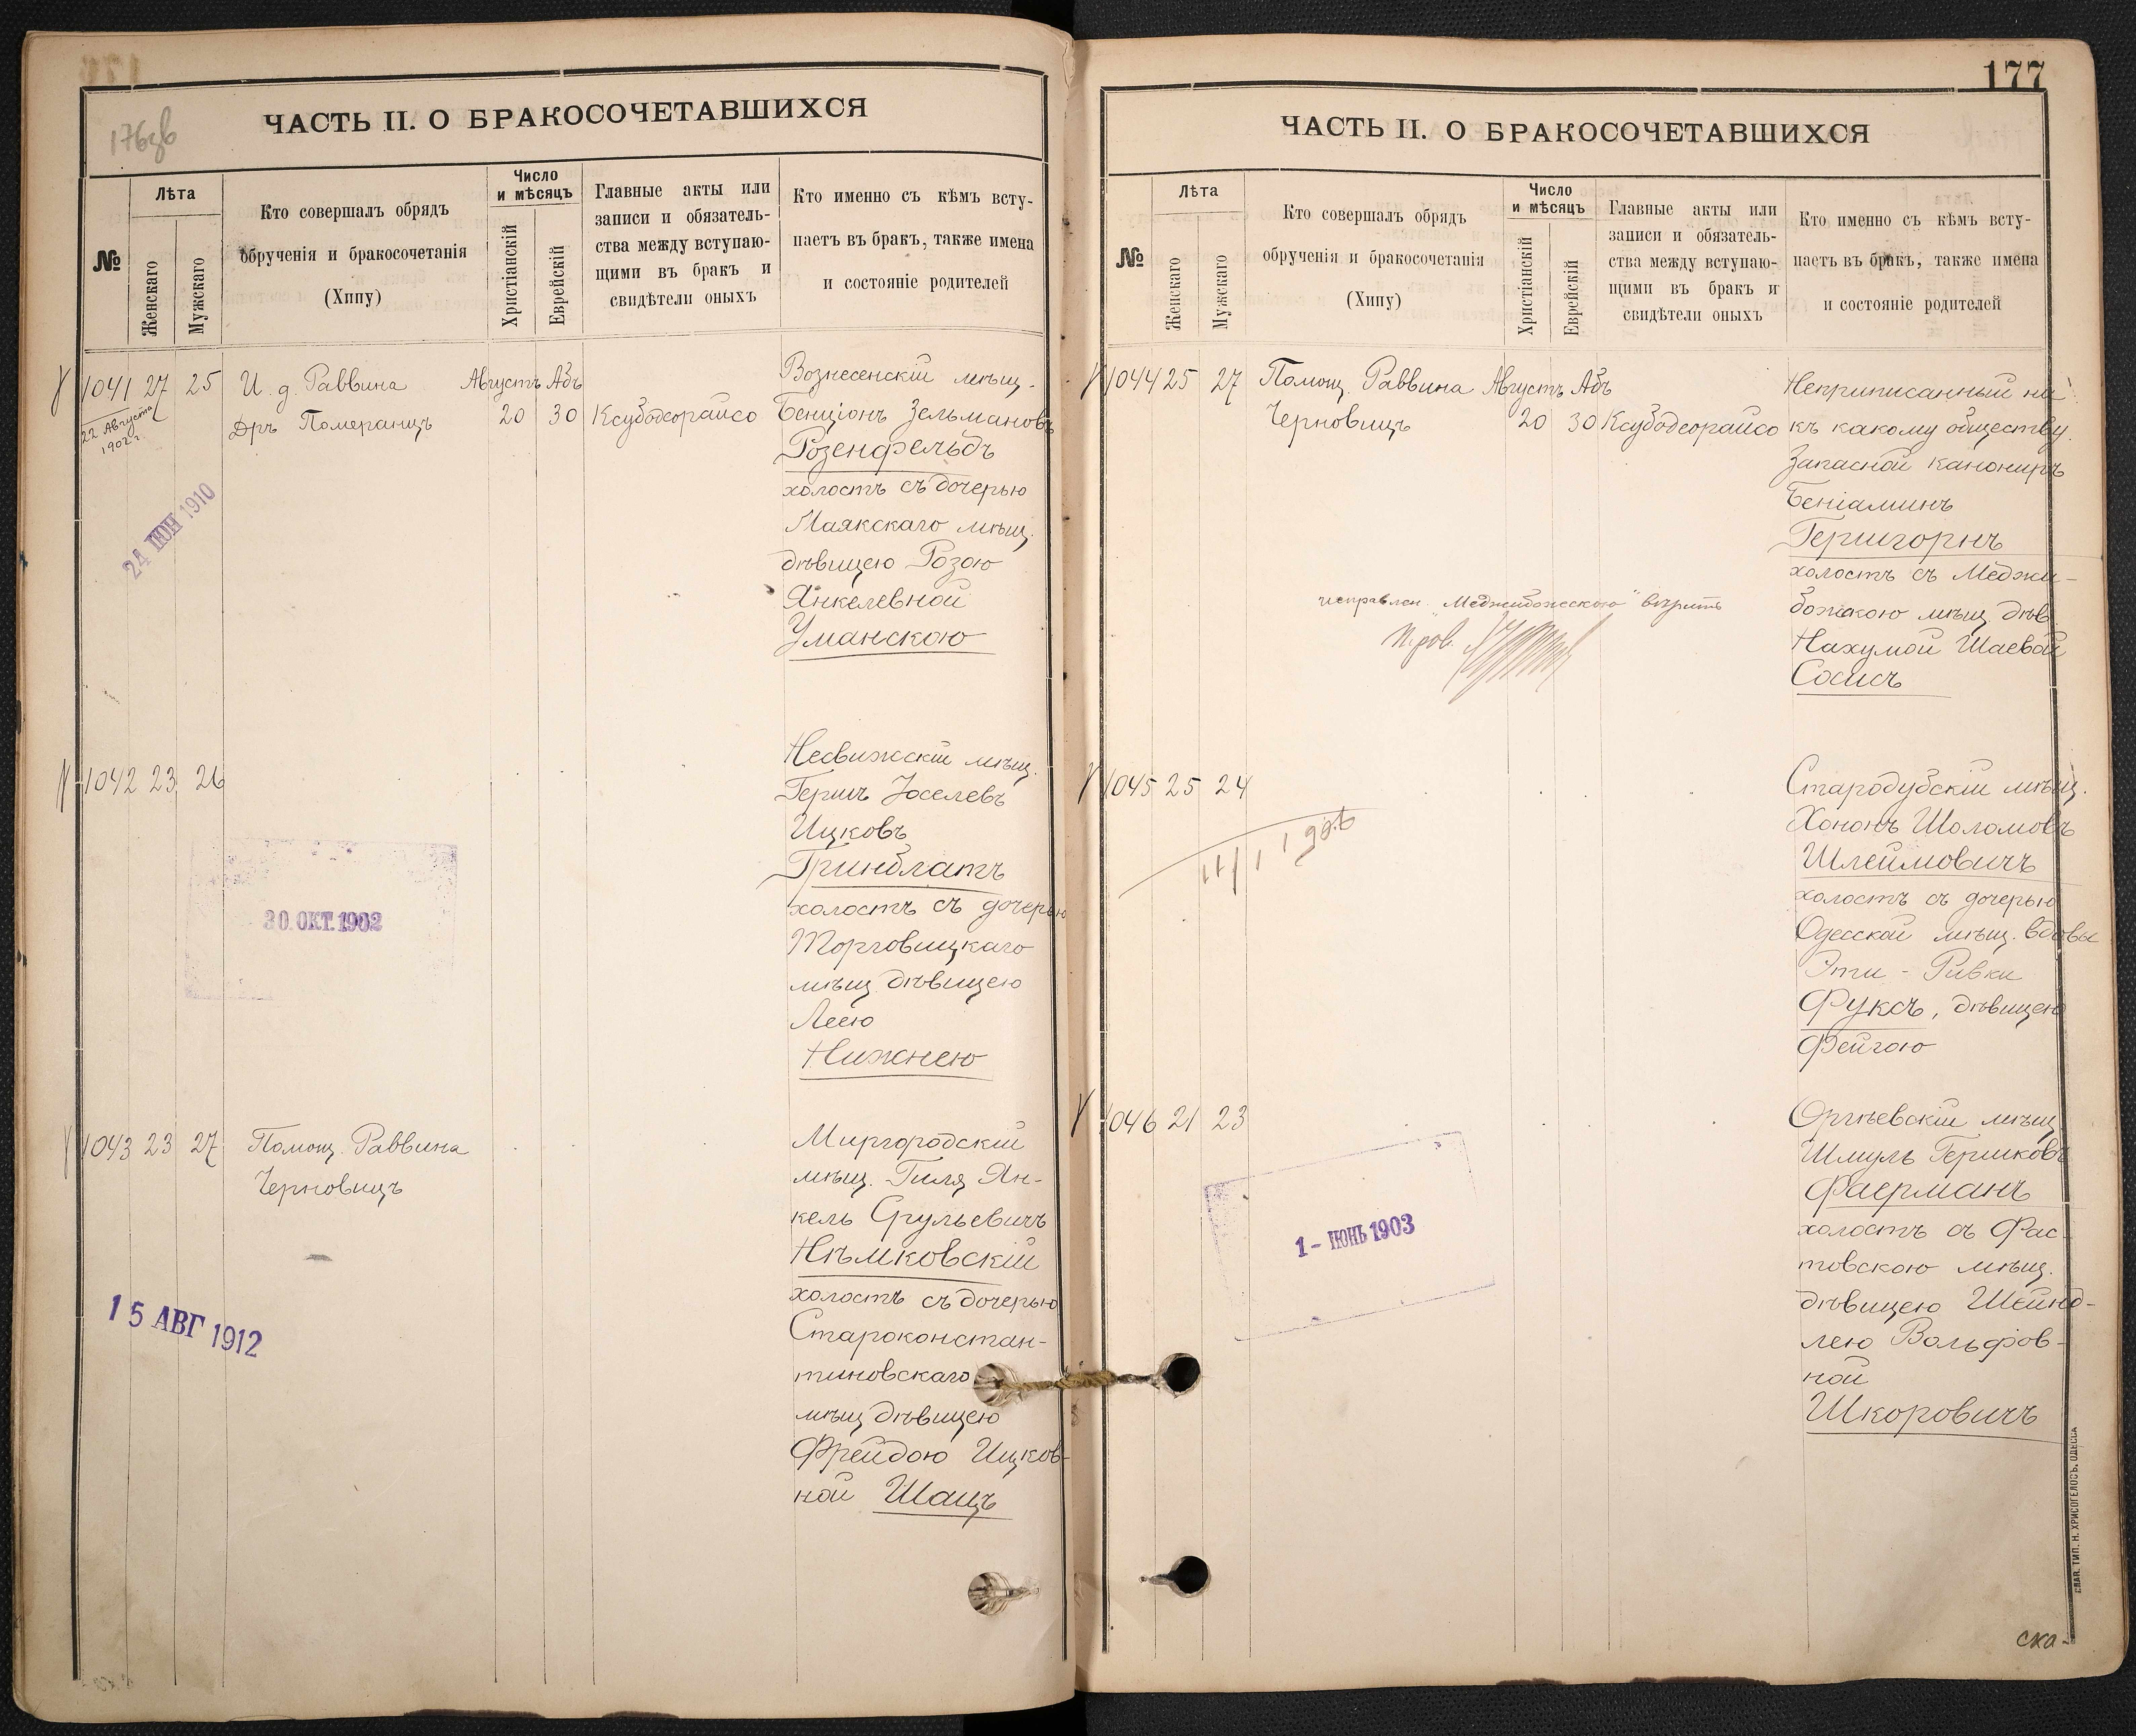 176об
ЧАСТЬ II. О БРАКОСОЧЕТАВШИХСЯ
№
Лѣта
Женскаго
Мужскаго
Кто совершалъ обрядъ
обрученія и бракосочетанія
(Хипу)
Число
и мѣсяцъ
Христіанскій
Еврейскій
Главные акты или
записи и обязатель-
ства между вступаю-
щими въ бракъ и
свидѣтели оныхъ
Кто именно съ кѣмъ всту-
паетъ въ бракъ, также имена
и состояніе родителей
1041 27 25 И. д. Раввина Августъ Абъ
22 Августа
1902 г.
Дръ Померанцъ 20 30 Ксубодеорайсо
Вознесенскій мѣщ.
Бенціонъ Зельмановъ
Розенфельдъ
холостъ съ дочерью
Маякскаго мѣщ.
дѣвицею Розою
Янкелевной
Уманскою
24 ІЮН 1910
1042 23 26
Несвижскій мѣщ.
Гершъ Іоселевъ
Ицковъ
Гринблатъ
холостъ съ дочерью
Торговицкаго
мѣщ. дѣвицею
Леею
Нижнею
30. ОКТ. 1902
1043 23 27 Помощ. Раввина
Черновицъ
Миргородскій
мѣщ. Гиля Ян-
кель Срульевичъ
Нѣмковскій
холостъ съ дочерью
Староконстан-
тиновскаго
мѣщ дѣвицею
Фрейдою Ицков-
ной Шацъ
15 АВГ 1912
177
ЧАСТЬ II. О БРАКОСОЧЕТАВШИХСЯ
№
Лѣта
Женскаго
Мужскаго
Кто совершалъ обрядъ
обрученія и бракосочетанія
(Хипу)
Число
и мѣсяцъ
Христіанскій
Еврейскій
Главные акты или
записи и обязатель-
ства между вступаю-
щими въ бракъ и
свидѣтели оныхъ
Кто именно съ кѣмъ всту-
паетъ въ бракъ, также имена
и состояніе родителей
1044 25 27 Помощ. Раввина Августъ Абъ
Черновицъ 20 30 Ксубодеорайсо
Неприписанный ни
къ какому обществу
Запасной канониръ
Беніаминъ
Гершгорнъ
холостъ съ Меджи-
божскою мѣщ. дѣв.
Нахумой Шаевой
Сосисъ
исправлен. "Меджибожскою" вѣрить
1045 25 24
Стародубскій мѣщ.
Хононъ Шоломовъ
Шлеймовичъ
холостъ съ дочерью
Одесской мѣщ. вдовы
Эти - Ривки
Фуксъ, дѣвицею
Фейгою
1046 21 23
Оргѣевскій мѣщ
Шмуль Гершковъ
Фаерманъ
холостъ съ Фас-
товскою мѣщ.
дѣвицею Шейнд-
лею Вольфов-
ной
Шкоровичъ
1 - ІЮНЬ 1903
СЛАВ. ТИП. Н. ХРИСОГЕЛОСЪ. ОДЕССА
ска-